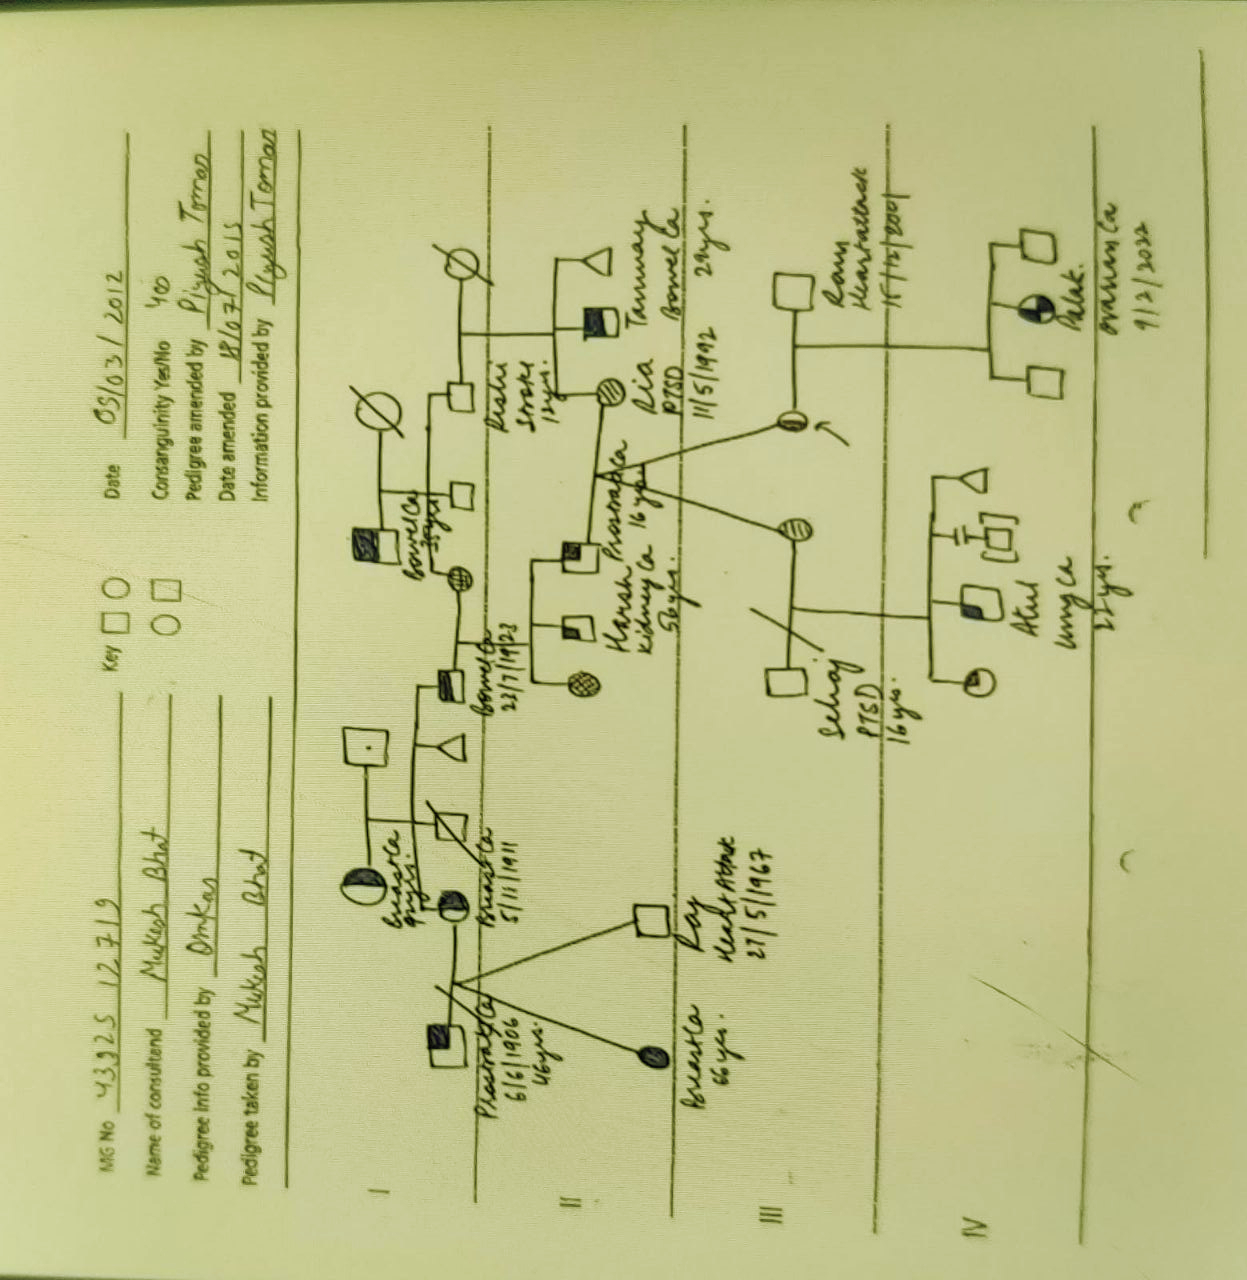 MG No 43925 12 719
Name of consultand Mukesh Bhat
Pedigree info provided by Omkar
Pedigree taken by Mukesh Bhat
Key
Date 05/03/2012
Consanguinity Yes/No
Pedigree amended by Piyush Tomar
Date amended 18/07/2015
Information provided by Piyush Tomar
I
Breast Ca
Bowel Ca
Prostate Ca
6/6/1906
46yrs.
Breast Ca
5/11/1911
Bowel Ca
23/7/1923
Rishi
Stroke
12yrs.
II
Breast Ca
66 yrs.
Ray
Heart Attack
27/5/1967
Harsh
Kidney Ca
56yrs.
Prostate Ca
16 yrs
Ria
PTSD
11/5/1992
Tanmay
Bowel Ca
29yrs.
III
Sehaj
PTSD
16yrs.
Ram
Heart attack
15/12/2001
IV
Atul
Lung Ca
22 yrs.
Palak.
Ovarian Ca
9/2/2022